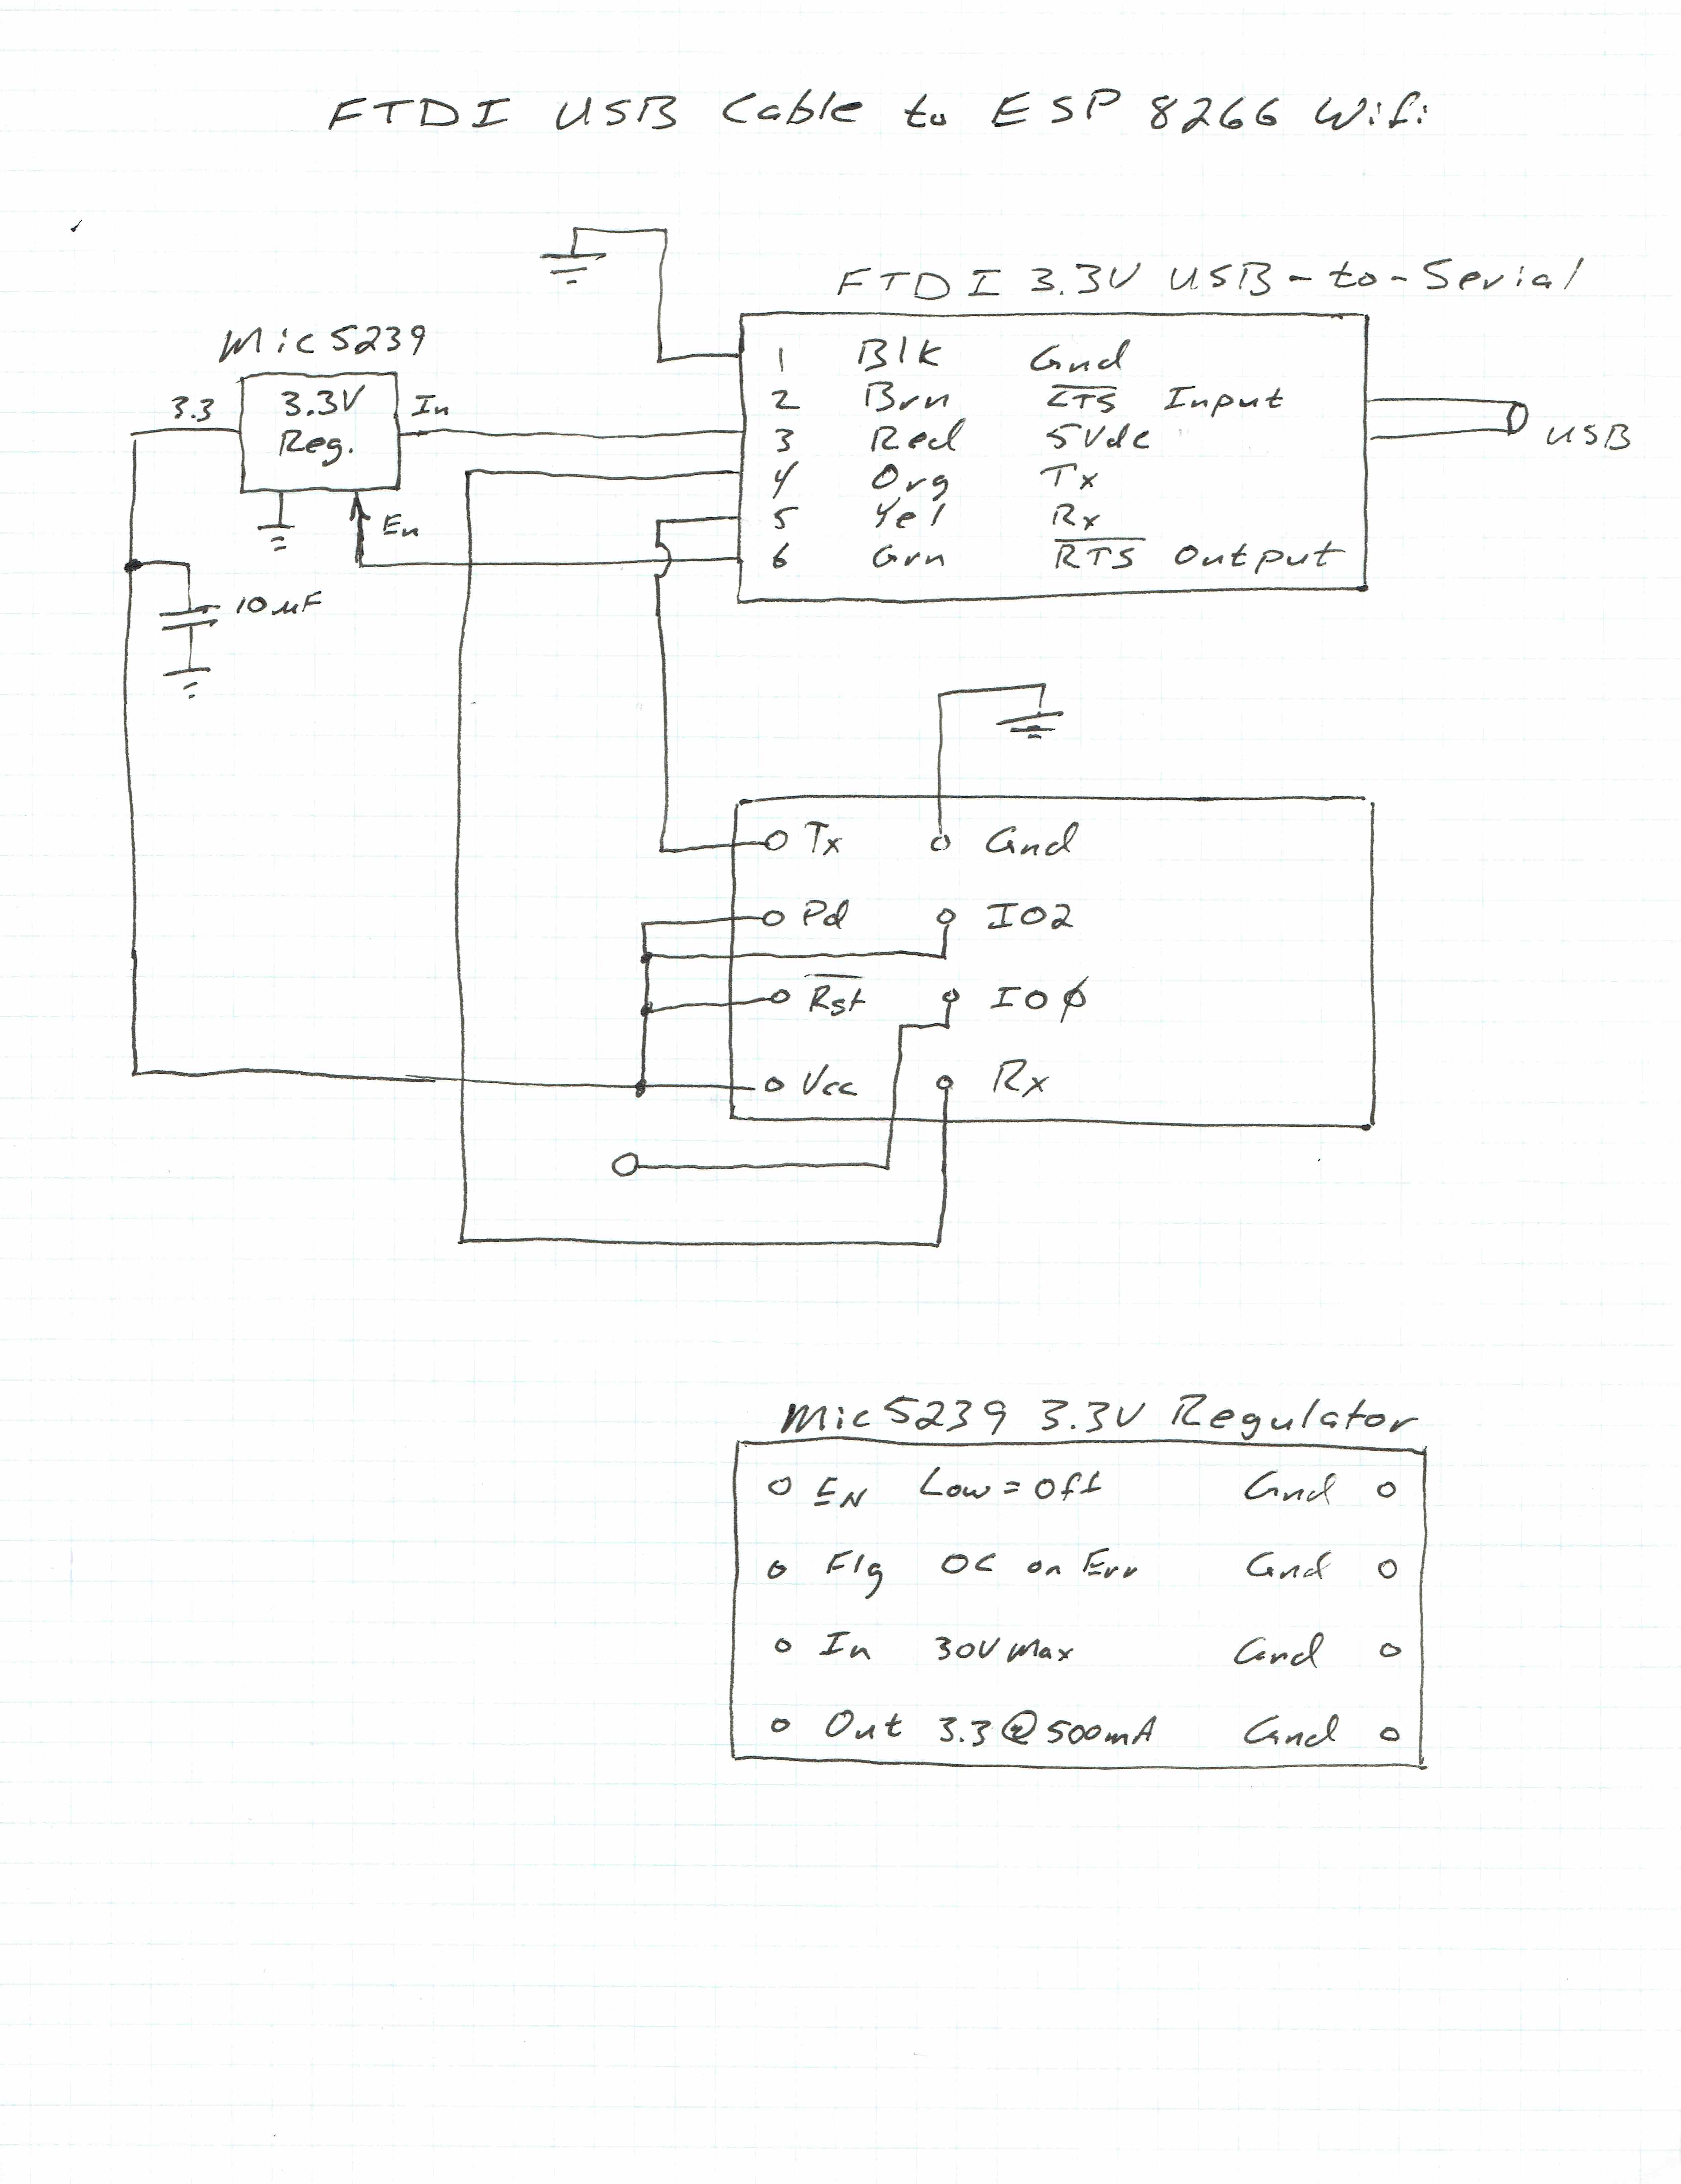 FTDI USB Cable to ESP 8266 Wifi
FTDI 3.3V USB-to-Serial
Mic5239
3.3 3.3V Reg. In
En
10uF
1 Blk Gnd
2 Brn CTS Input
3 Red 5Vdc
4 Org Tx
5 Yel Rx
6 Grn RTS Output
USB
Tx Gnd
Pd IO2
Rst IOφ
Vcc Rx
Mic5239 3.3V Regulator
EN Low=Off Gnd
Flg OC on Err Gnd
In 30V Max Gnd
Out 3.3@500mA Gnd